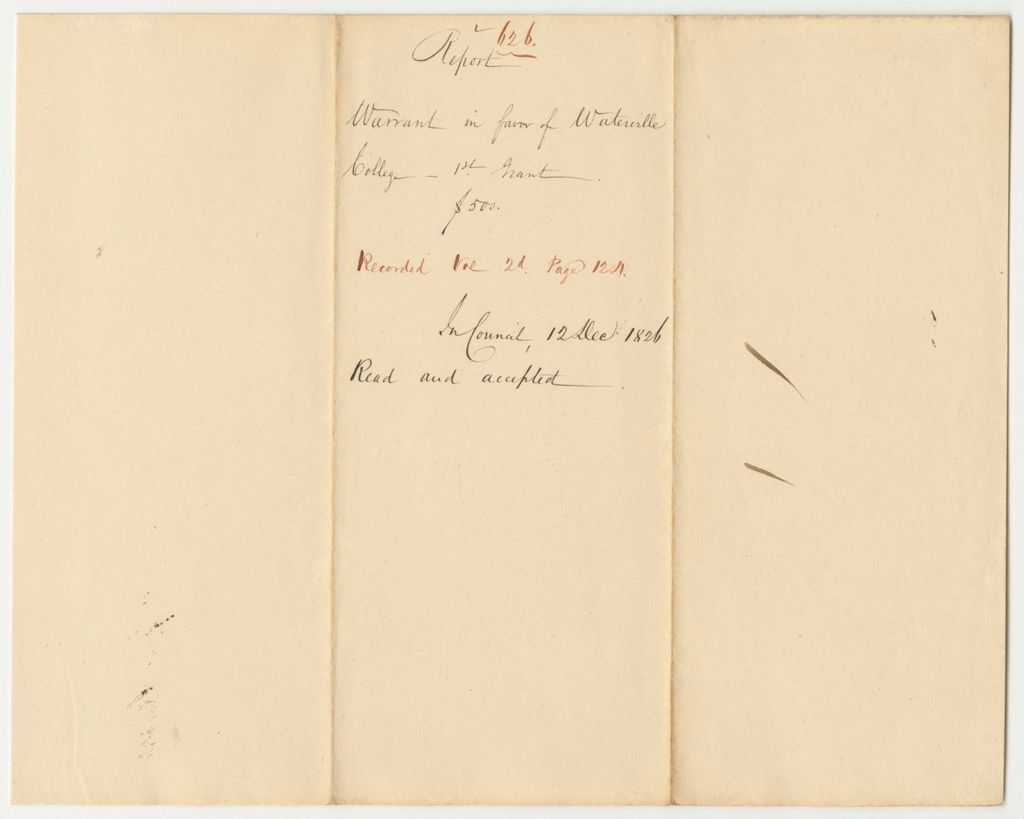 Report 626.
Warrant in favor of Waterville
College – 1st Grant.
$500.
Recorded Vol 2d. Page 124.
In Council, 12 Dec. 1826
Read and accepted.